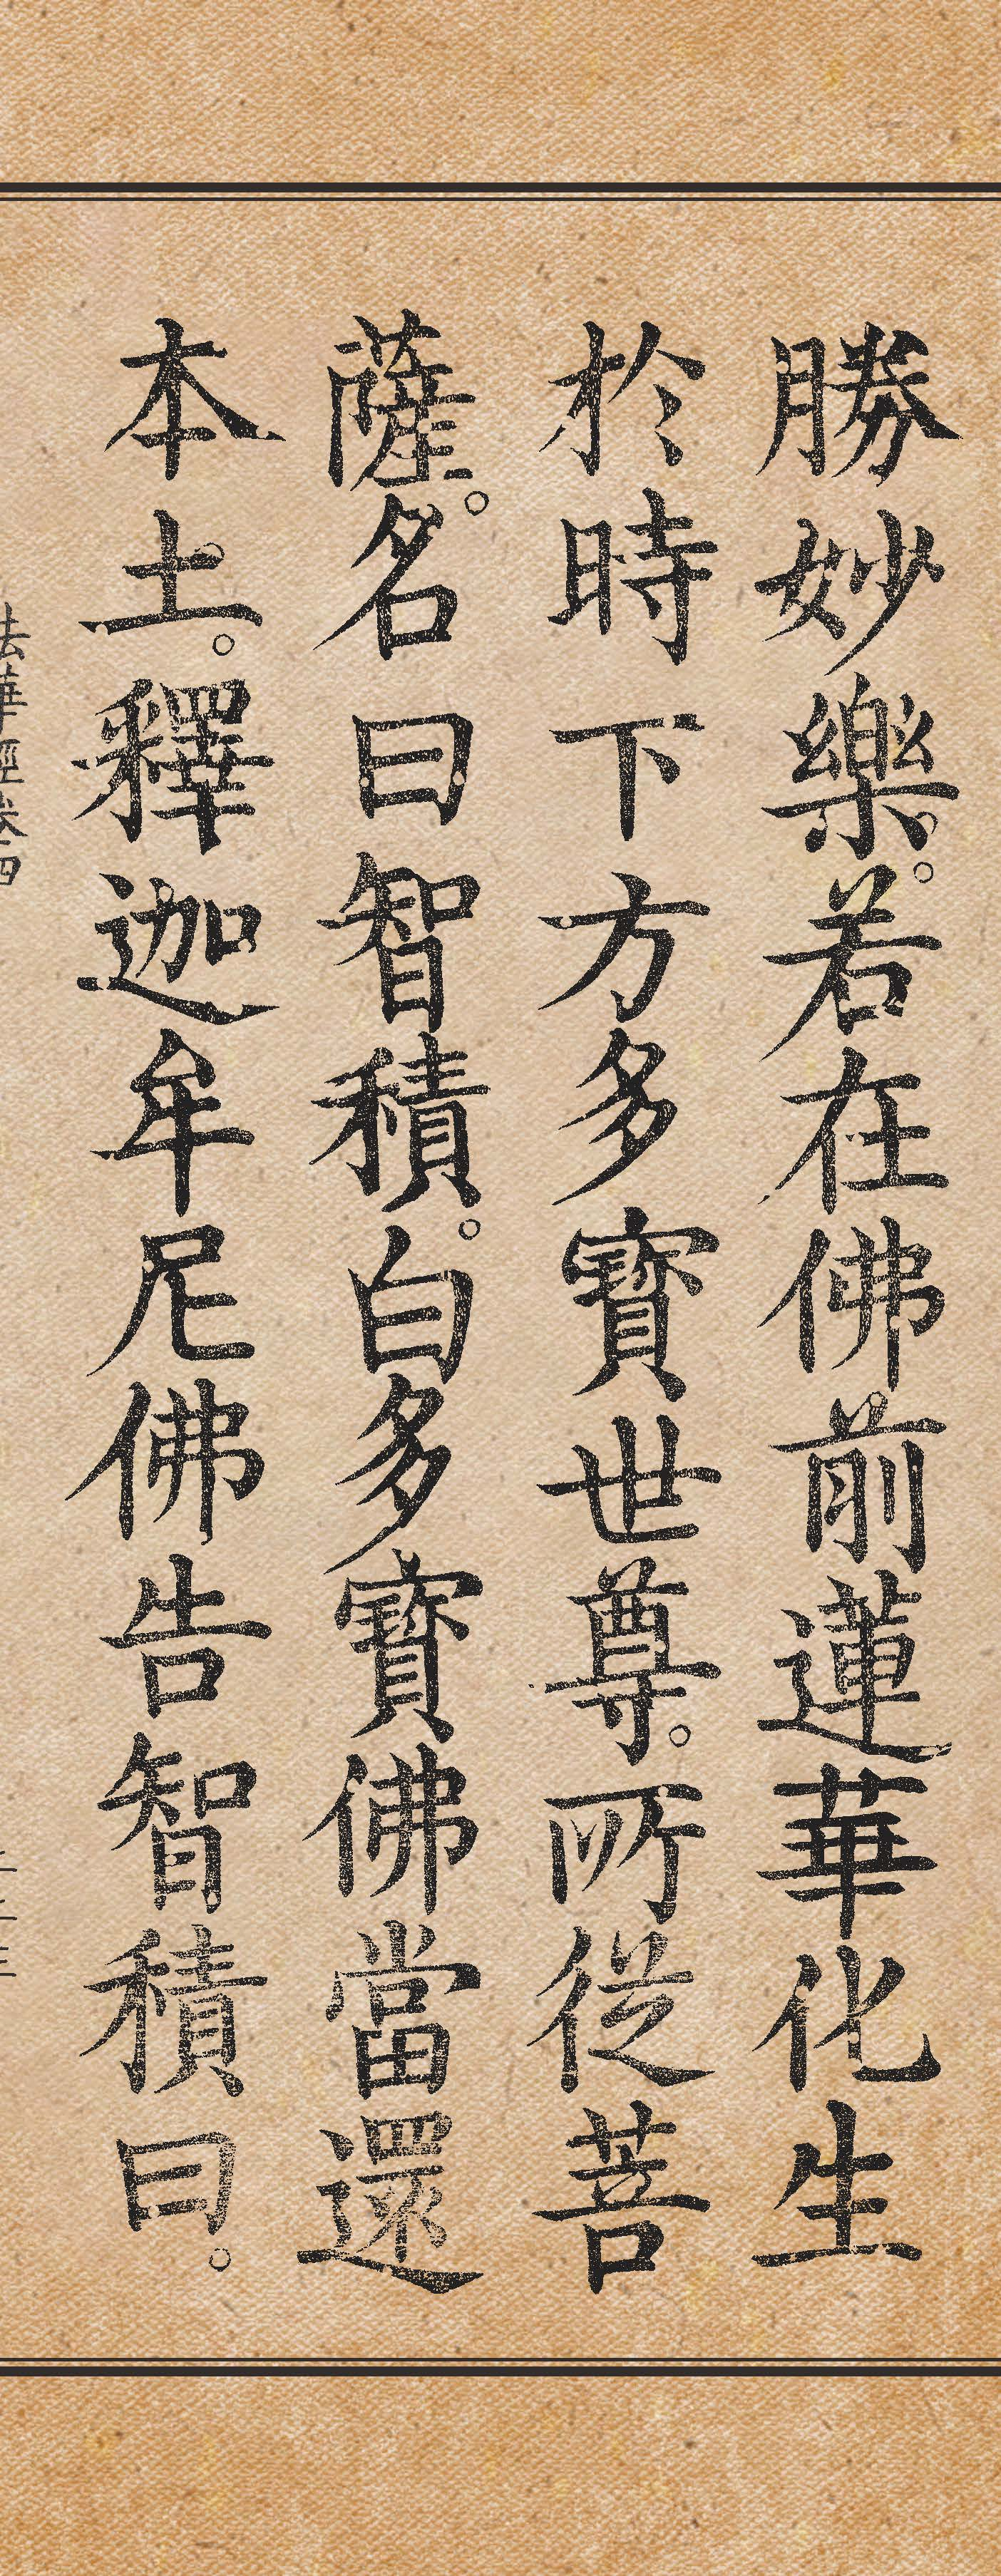 勝妙樂。若在佛前蓮華化生
於時下方多寶世尊。所從菩
薩。名曰智積。白多寶佛當還
本土。釋迦牟尼佛告智積曰。
法華經卷四